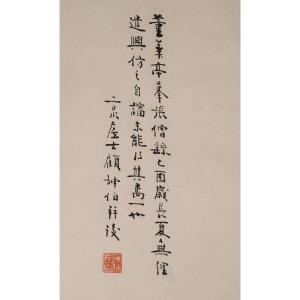 董華亭摹張僧繇乙酉歲長夏無俚
遣興仿之自謂未能得其萬一也
二泉居士顧坤伯并識